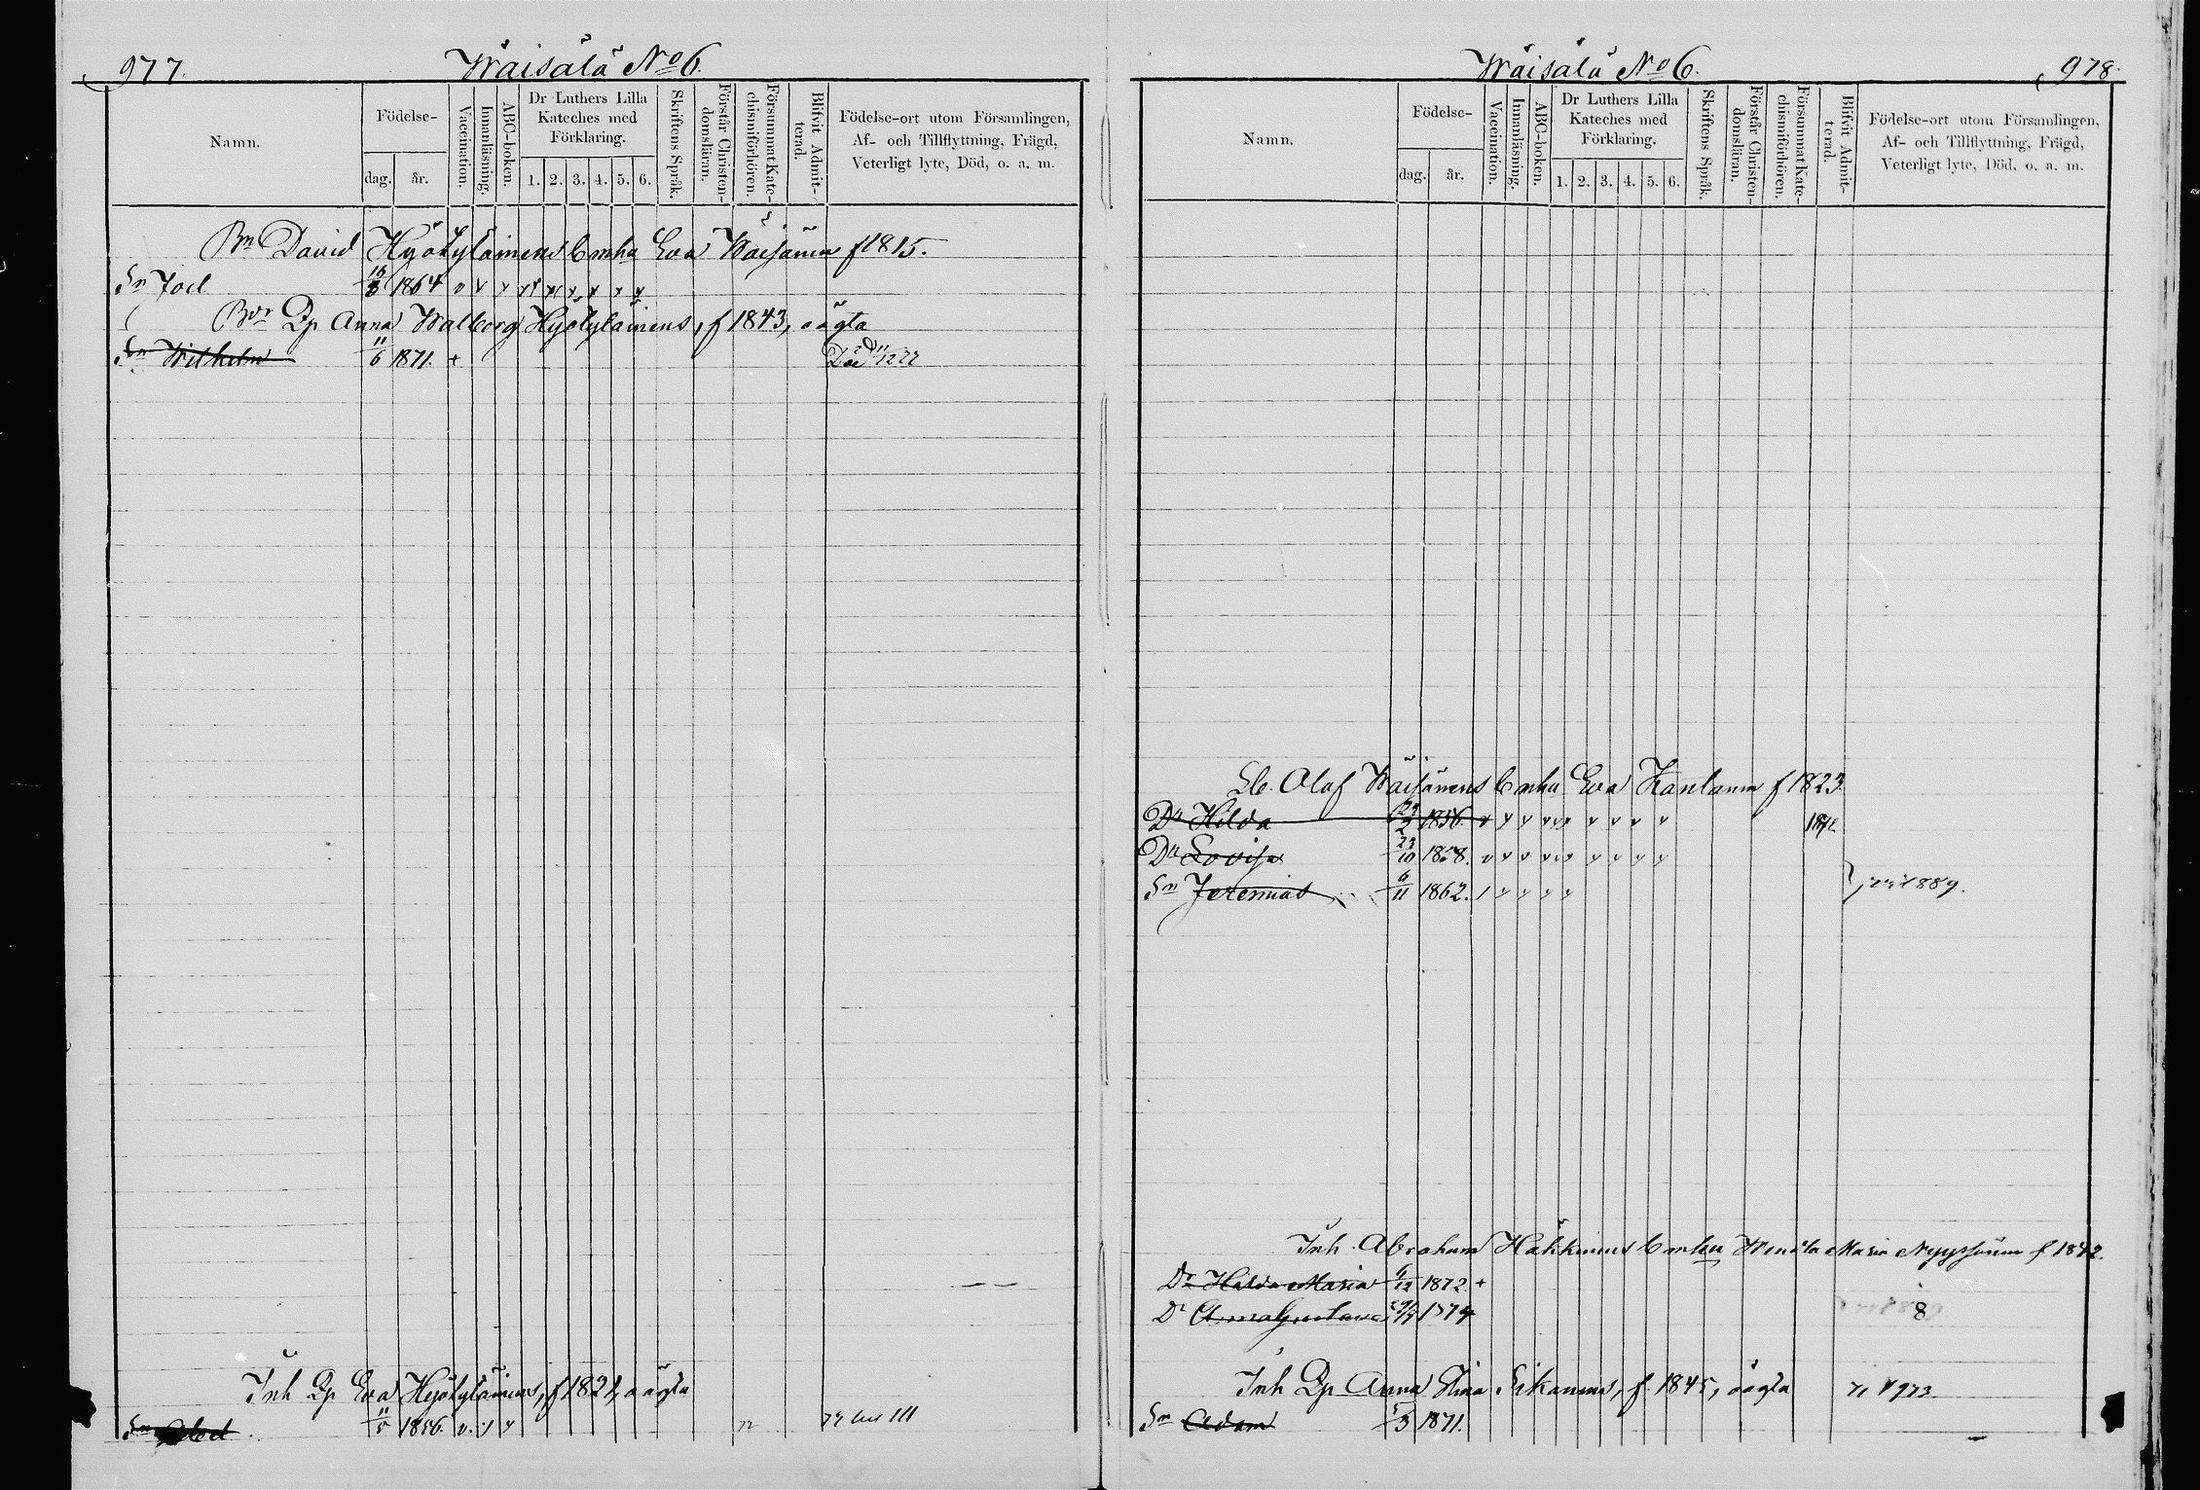 977. Wäisälä No 6.
Namn.
Födelse-
dag. år.
Vaccination.
Innanläsning.
ABC-boken.
Dr Luthers Lilla Kateches med Förklaring.
1. 2. 3. 4. 5. 6.
Skriftens Språk.
Förstår Christendomsläran.
Försummat Katechismiförhören.
Blifvit Admitterad.
Födelse-ort utom Församlingen,
Af- och Tillflyttning, Frägd,
Veterligt lyte, Död, o. a. m.
Bn David Hyötyläinens Enka Eva Wäisänen f 1815.
Sn Joel 1864
Dp Anna Walborg Hyötyläinens, f 1843, oägta
Sn Wilhelm 11/6 1871. +
Inh Dp Eva Hyötyläinens, f 1821, oägta
Sn 11/5 1856.
Wäisälä No 6. 978.
Namn.
Födelse-
dag. år.
Vaccination.
Innanläsning.
ABC-boken.
Dr Luthers Lilla Kateches med Förklaring.
1. 2. 3. 4. 5. 6.
Skriftens Språk.
Förstår Christendomsläran.
Försummat Katechismiförhören.
Blifvit Admitterad.
Födelse-ort utom Församlingen,
Af- och Tillflyttning, Frägd,
Veterligt lyte, Död, o. a. m.
Olof Wäisänens Enka Eva f 1823
Dr Hilda 1856.
Dr Lovisa 23/10 1858.
Sn Jeremias 6/11 1862. 889.
Inh. Abraham Häkkinens Enka Maria Nyyssönen f 1842.
Dr Hilda Maria 1872. +
Dr Anna Gustava 1874
Inh Dp Anna Stina Sikanens, f. 1845, oägta 973
Sn Adam 1871.